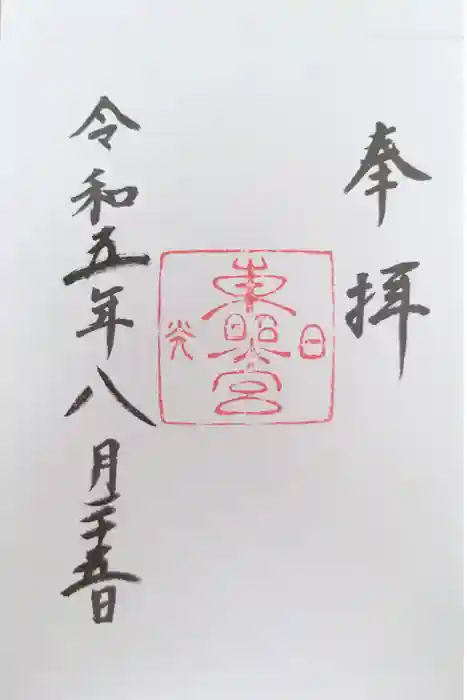 奉拝
日
東照宮
光
令和五年八月二十五日